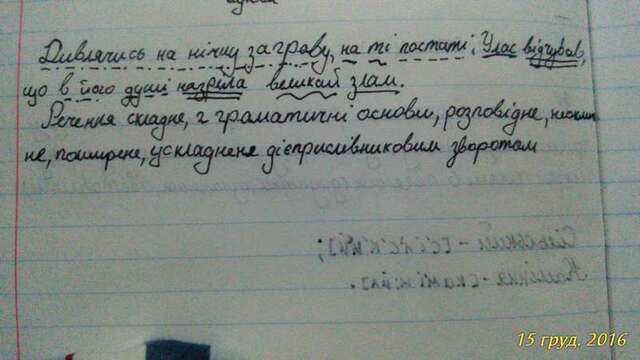 Дивлячись на нічну заграву, на ті постаті, Улас відчував,
що в його душі назріва великий злам.
Речення складне, 2 граматичні основи, розповідне, неокли
не, поширене, ускладнене дієприслівниковим зворотом
15 груд. 2016